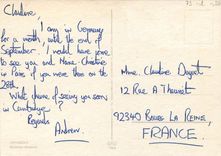 Claudine,
I am in Germany
for a month, until the end of
September. I would have love
to see you and Marie-Christine
in Paris if you were there on the
28th.
What chance of seeing you soon
in Cambridge?
Regards
Andrew.
Mme. Claudine
12 Rue A Thouret
92340 BOURG LA REINE,
FRANCE.